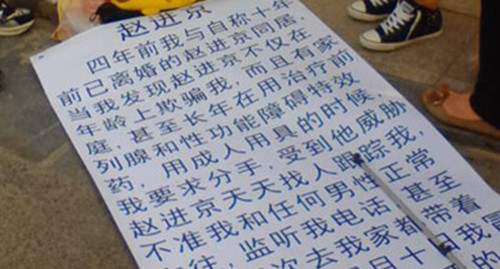 赵进京
四年前我与自称十年
前已离婚的赵进京同居,
当我发现赵进京不仅在
年龄上欺骗我,而且有家
庭,甚至长年在用治疗前
列腺和性功能障碍特效
药,用成人用具的时候,
我要求分手,受到他威胁
赵进京天天找人跟踪我,
不准我和任何男性正常
往,监听我电话,甚至
次去我家都带着
日十
的